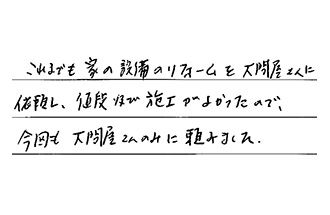 これまでも家の設備のリフォームを大問屋さんに
依頼し、値段及び施工がよかったので、
今回も大問屋さんのみに頼みました.